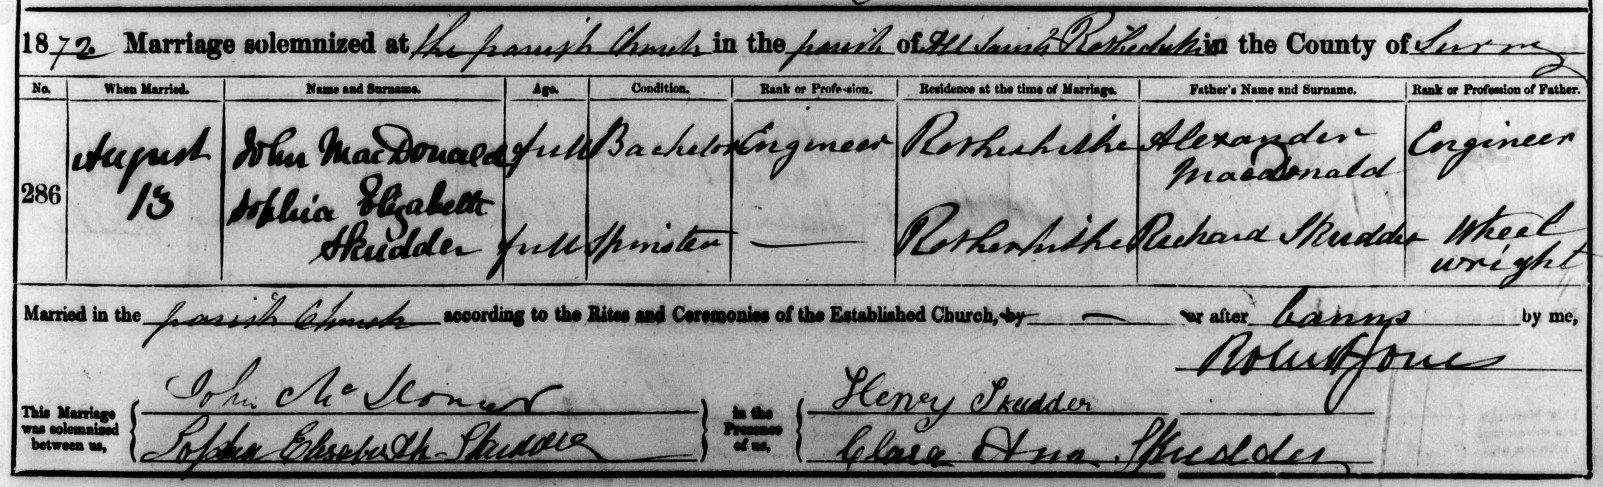 1872 Marriage solemnized at the parish Church in the parish of All Saints Rotherhithe in the County of Surrey
No. When Married. Name and Surname. Age. Condition. Rank or Profession. Residence at the time of Marriage. Father's Name and Surname. Rank or Profession of Father.
286 August 13 John MacDonald full Bachelor Engineer Rotherhithe Alexander MacDonald Engineer
Sophia Elizabeth Skudder full Spinster — Rotherhithe Richard Skudder Wheel wright
Married in the parish Church according to the Rites and Ceremonies of the Established Church, by — or after banns by me,
Robert Jones
This Marriage was solemnized between us, John Mc Donald in the Presence of us, Henry Skudder
Sophia Elizabeth Skudder Clara Ann Skudder